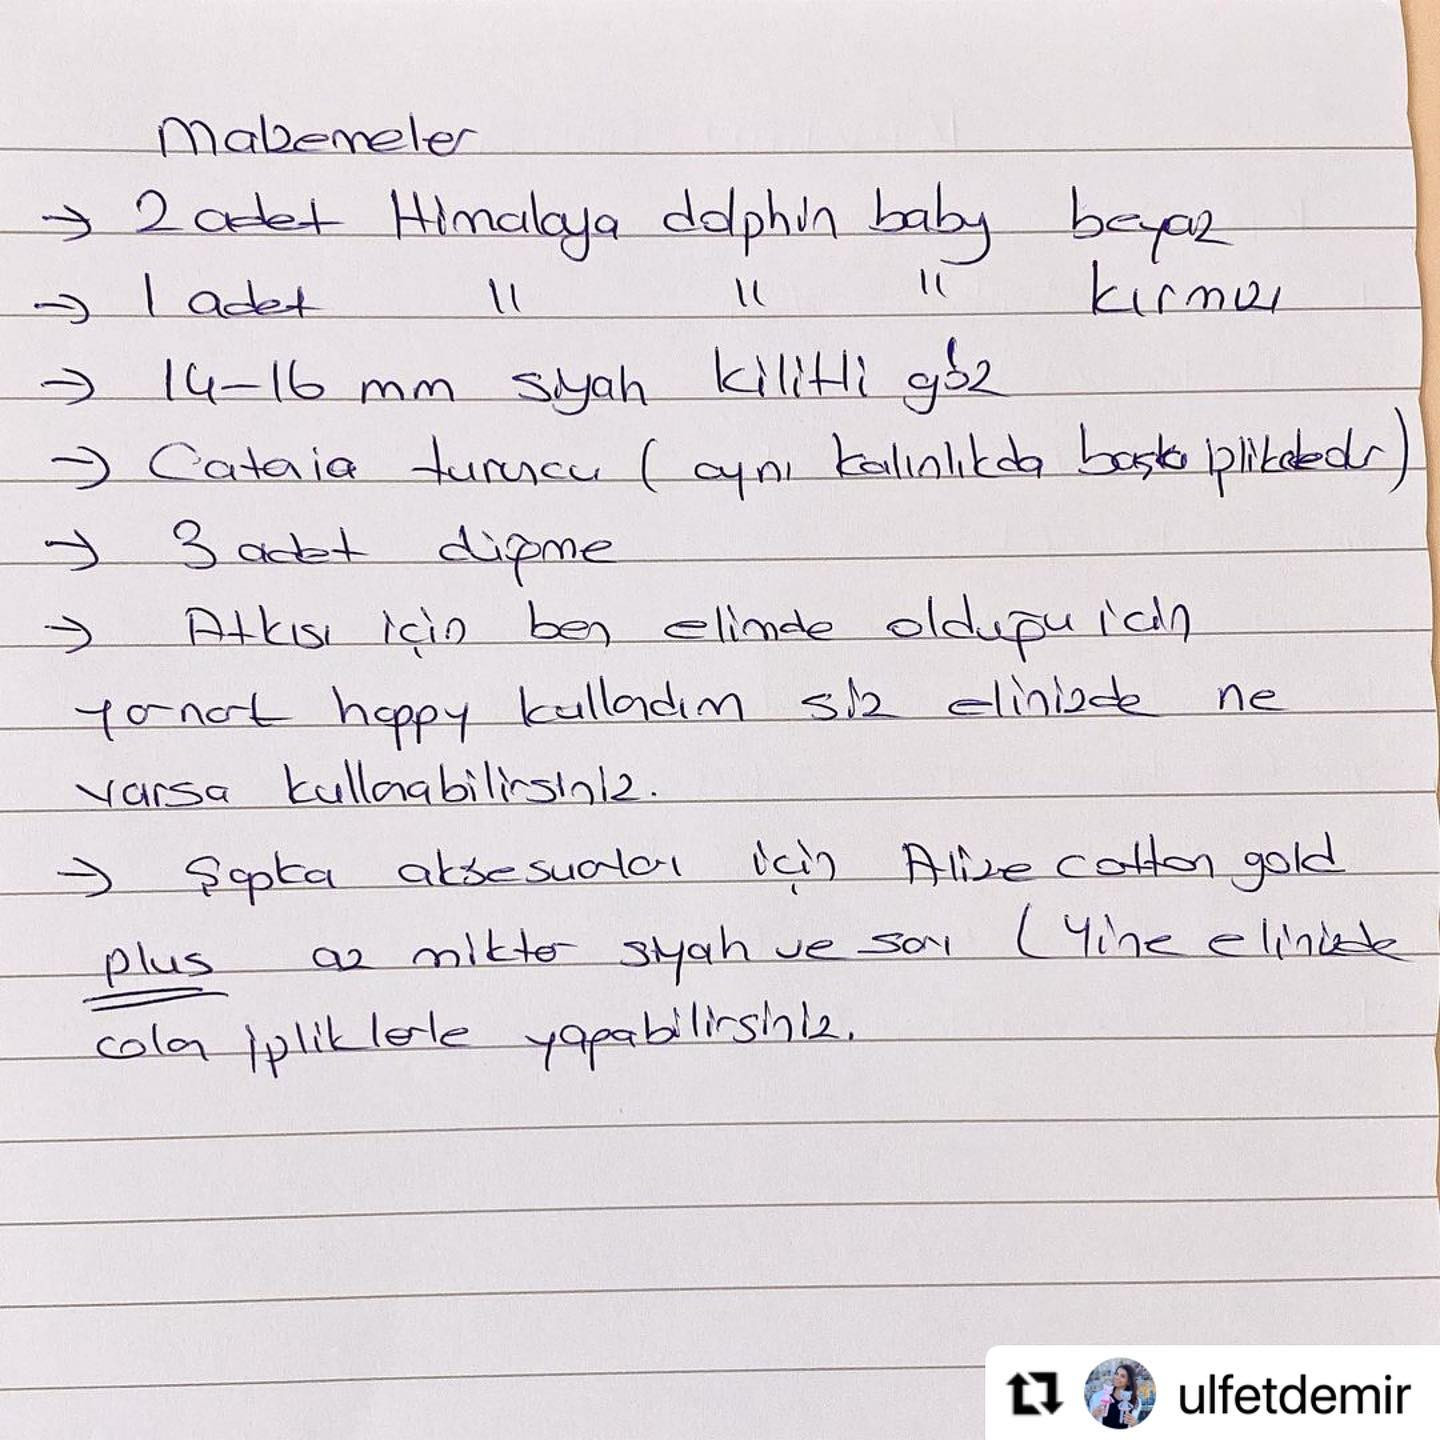 Malzemeler
→ 2 adet Himalaya dolphin baby beyaz
→ 1 adet " " " kırmızı
→ 14-16 mm siyah kilitli göz
→ Catania turuncu ( aynı kalınlıkda başka iplikdedr)
→ 3 adet düğme
→ Atkısı için ben elimde olduğu için
yarnart happy kullandım siz elinizde ne
varsa kullanabilirsiniz.
→ Şapka aksesuarları için Alize cotton gold
plus az miktar siyah ve sarı ( Yine elinizde
olan ipliklerle yapabilirsiniz.
ulfetdemir